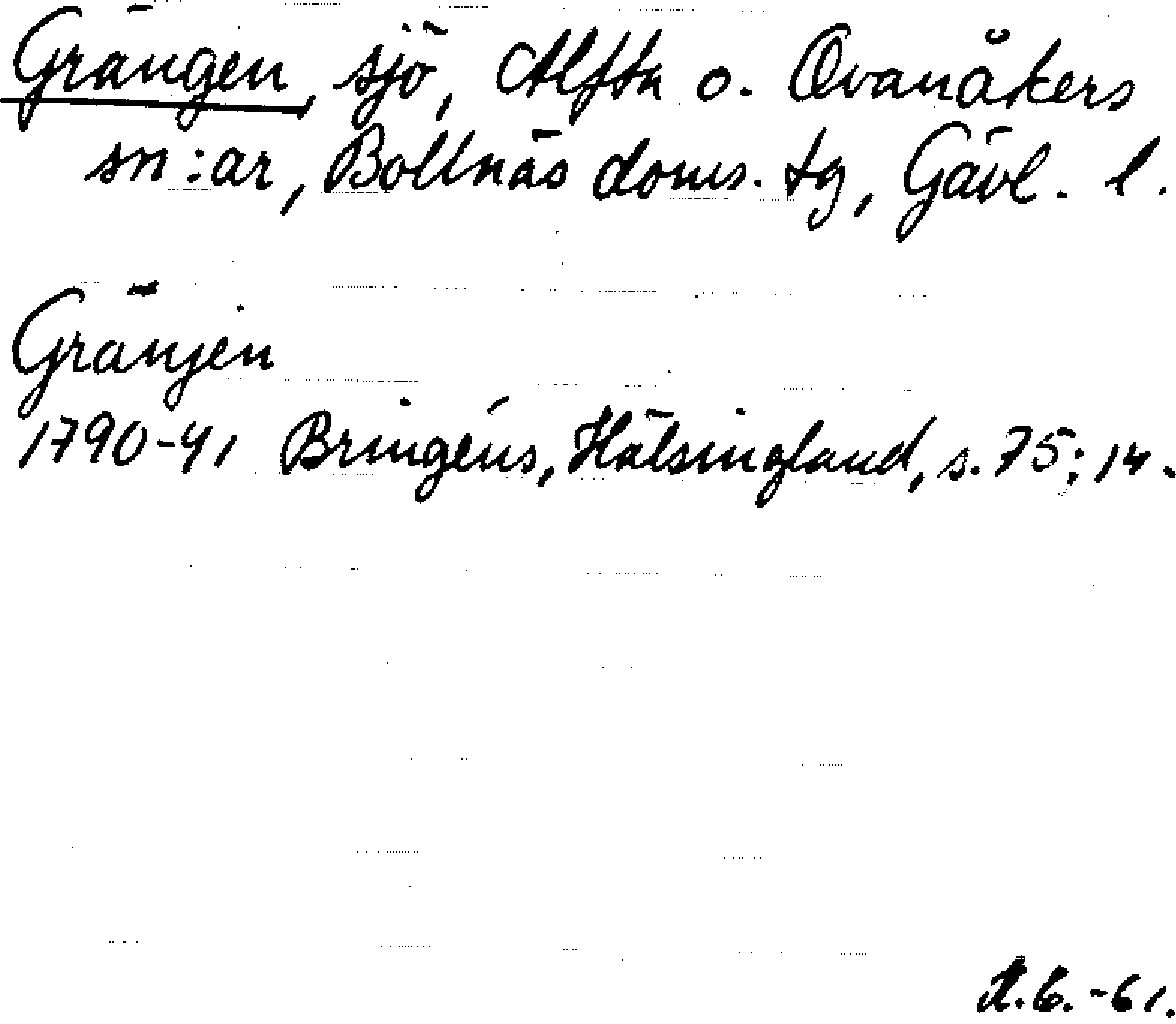 Grängen, sjö, Alfta o. Ovanåkers
sn:ar, Bollnäs doms. tg, Gävl. l.
Gränjen
1790-91 Bringéus, Hälsingland, s. 75; 14.
-61.